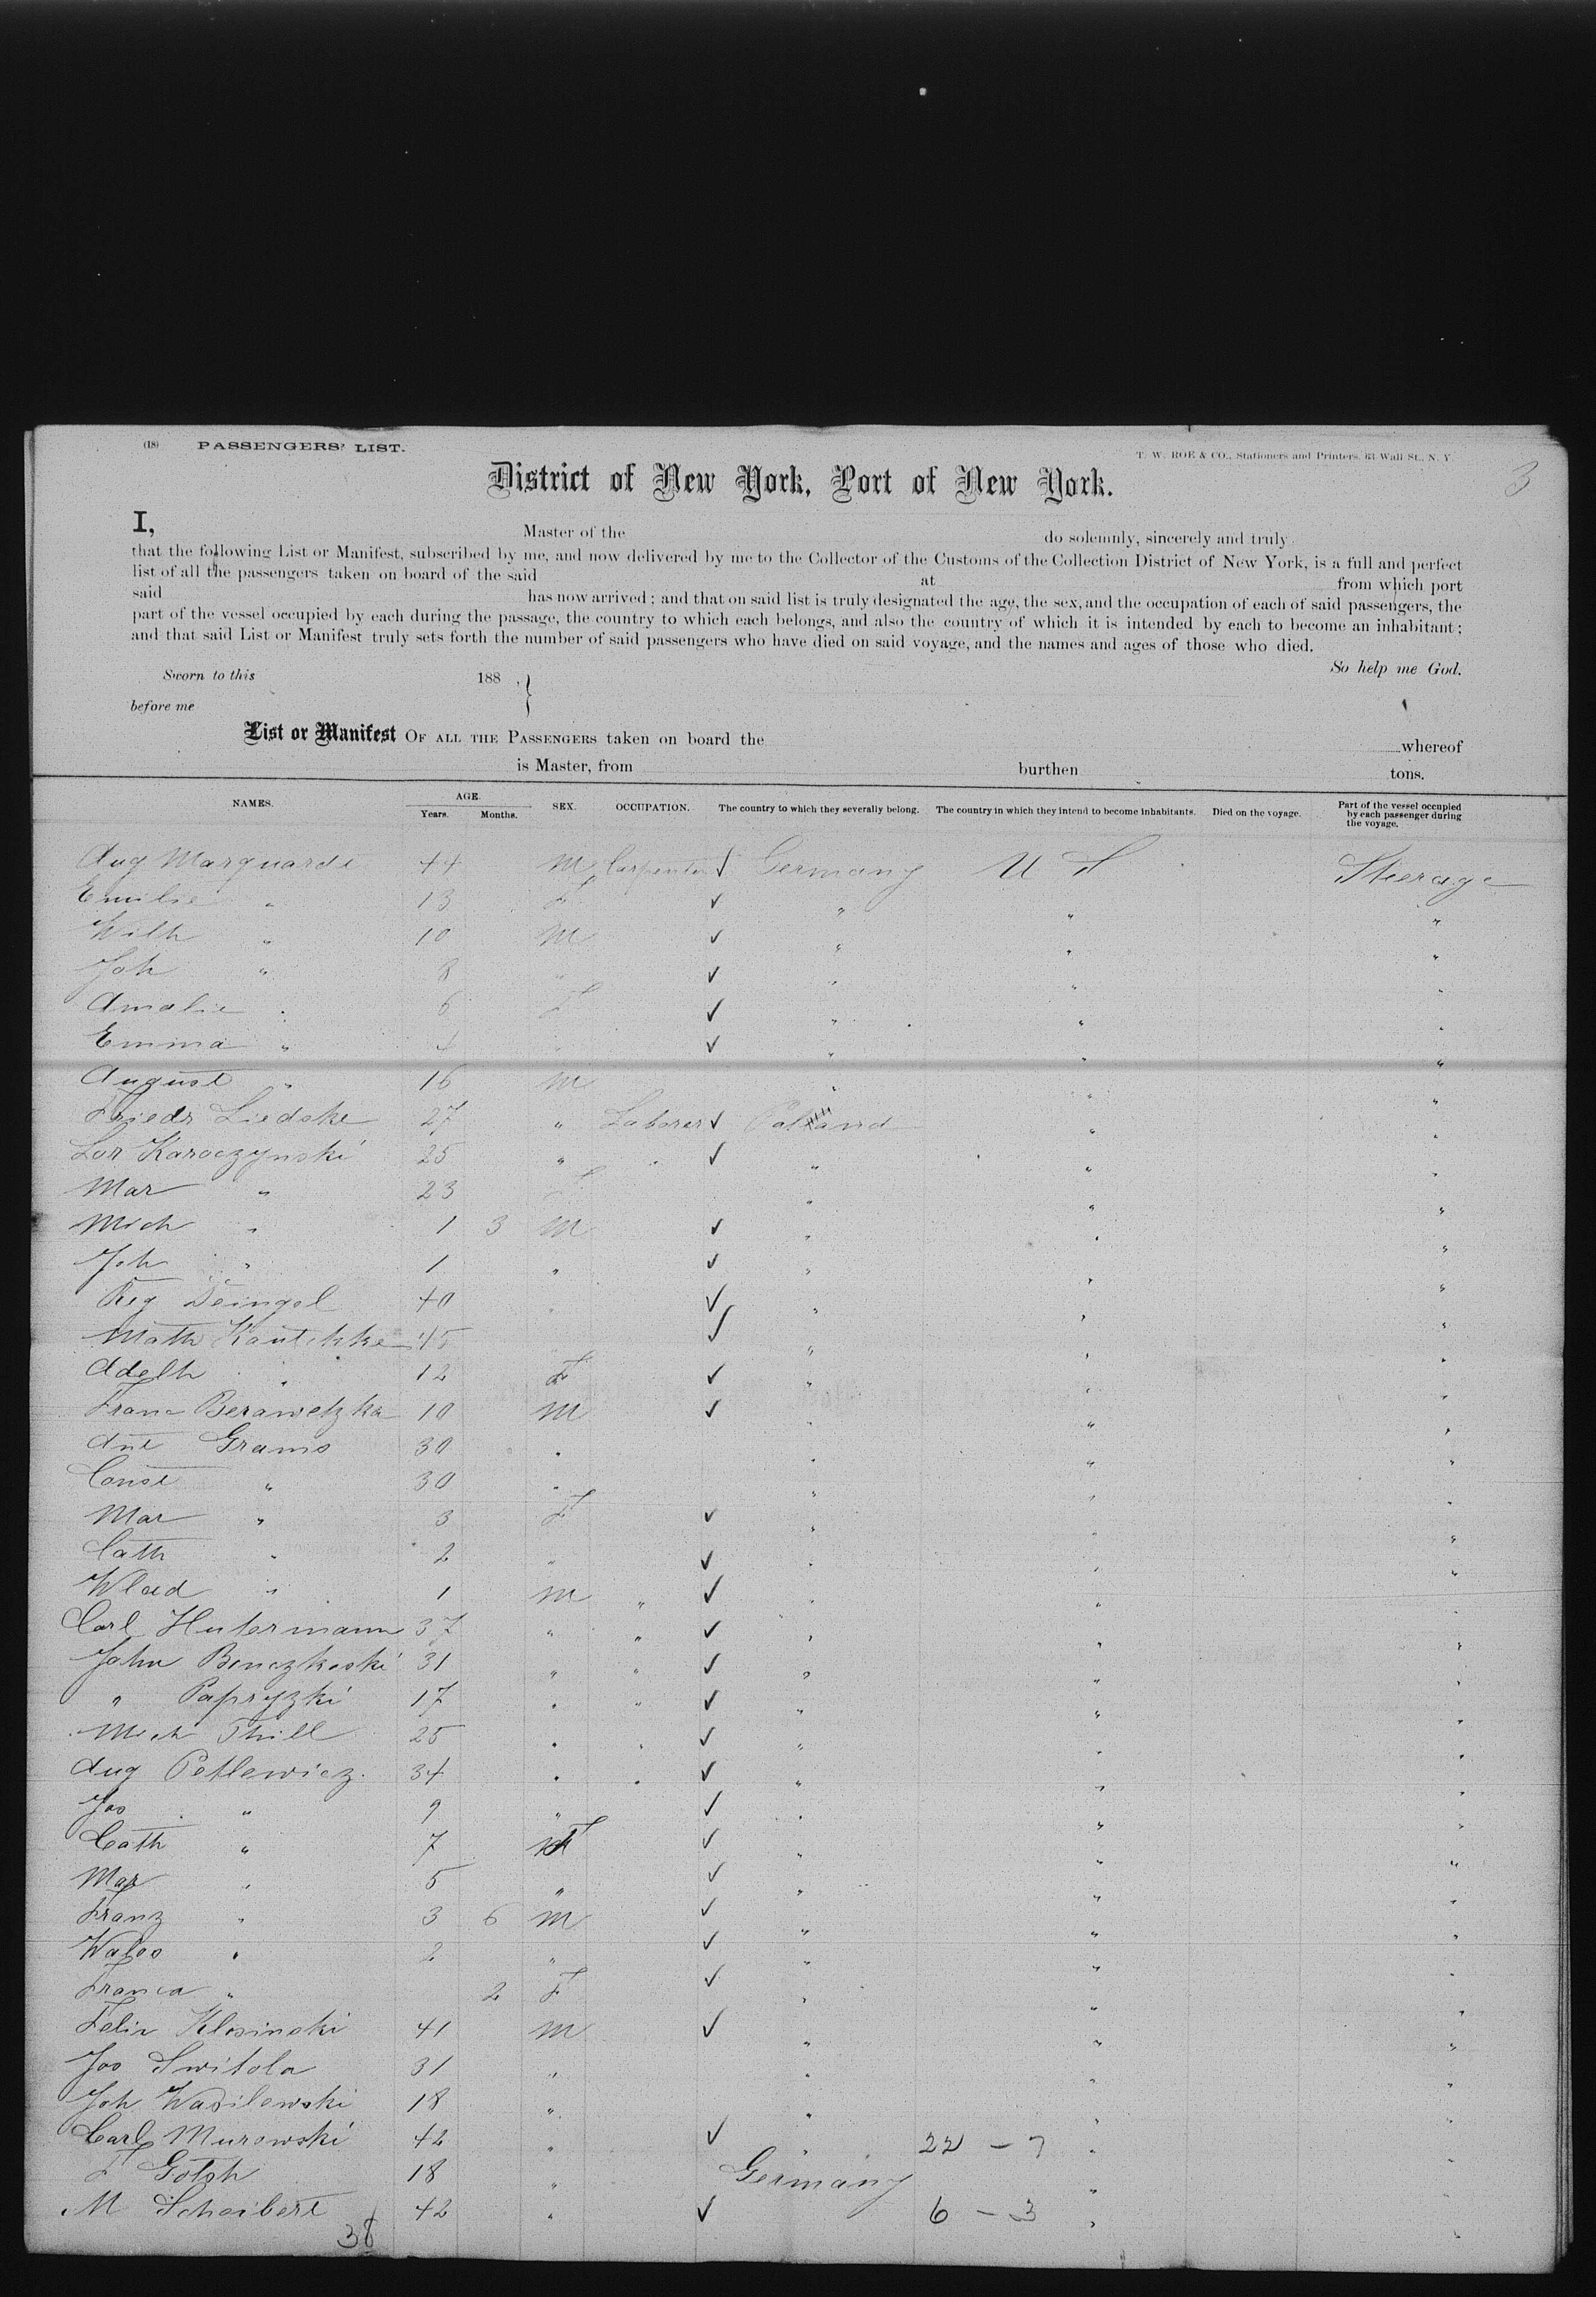 (18) PASSENGERS' LIST.
T. W. ROE & CO., Stationers and Printers, 63 Wall St., N. Y.
3
District of New York, Port of New York.
I, Master of the do solemnly, sincerely and truly
that the following List or Manifest, subscribed by me, and now delivered by me to the Collector of the Customs of the Collection District of New York, is a full and perfect
list of all the passengers taken on board of the said at from which port
said has now arrived; and that on said list is truly designated the age, the sex, and the occupation of each of said passengers, the
part of the vessel occupied by each during the passage, the country to which each belongs, and also the country of which it is intended by each to become an inhabitant;
and that said List or Manifest truly sets forth the number of said passengers who have died on said voyage, and the names and ages of those who died.
So help me God.
Sworn to this 188 , }
before me
List or Manifest OF ALL THE PASSENGERS taken on board the whereof
is Master, from burthen tons.
NAMES. AGE. Years. Months. SEX. OCCUPATION. The country to which they severally belong. The country in which they intend to become inhabitants. Died on the voyage. Part of the vessel occupied by each passenger during the voyage.
Aug Marquardt 44 M Carpenter ✓ Germany U S Steerage
Emilie " 13 F ✓ " " "
Wilh " 10 M ✓ " " "
Joh " 8 " ✓ " " "
Amalie " 6 F ✓ " " "
Emma " 4 " ✓ " " "
August " 16 M " " "
Friedr Liedske 27 " Laborer ✓ Poland " "
Lor Karoczynski 25 " " ✓ " " "
Mar " 23 F " " "
Mich " 1 3 M ✓ " " "
Joh " 1 " ✓ " " "
Reg Deingol 40 " ✓ " " "
Math Kautchke 45 ✓ " " "
Adelh " 12 F ✓ " " "
Franz Berawetzka 10 M ✓ " " "
Ant Grams 30 " " " "
Const " 30 " " " "
Mar " 3 F ✓ " " "
Cath " 2 " ✓ " " "
Wlad " 1 M " ✓ " " "
Carl Hutermann 37 " " ✓ " " "
John Benczkoski 31 " " ✓ " " "
" Papryzki 17 " " ✓ " " "
Mich Thill 25 " " ✓ " " "
Aug Petlewicz 34 " " ✓ " " "
Jos " 9 " ✓ " " "
Cath " 7 F ✓ " " "
Mar " 5 " ✓ " " "
Franz " 3 6 M ✓ " " "
" 2 " ✓ " " "
Franca " 2 F ✓ " " "
Felix Klosinski 41 M ✓ " " "
Jos Switola 31 " " " "
Joh Wasilewski 18 " " " "
Carl Murowski 42 " ✓ " 22 - 7 " "
F Gotsh 18 " Germany " "
M Schoibert 42 " ✓ 6 - 3 " "
38